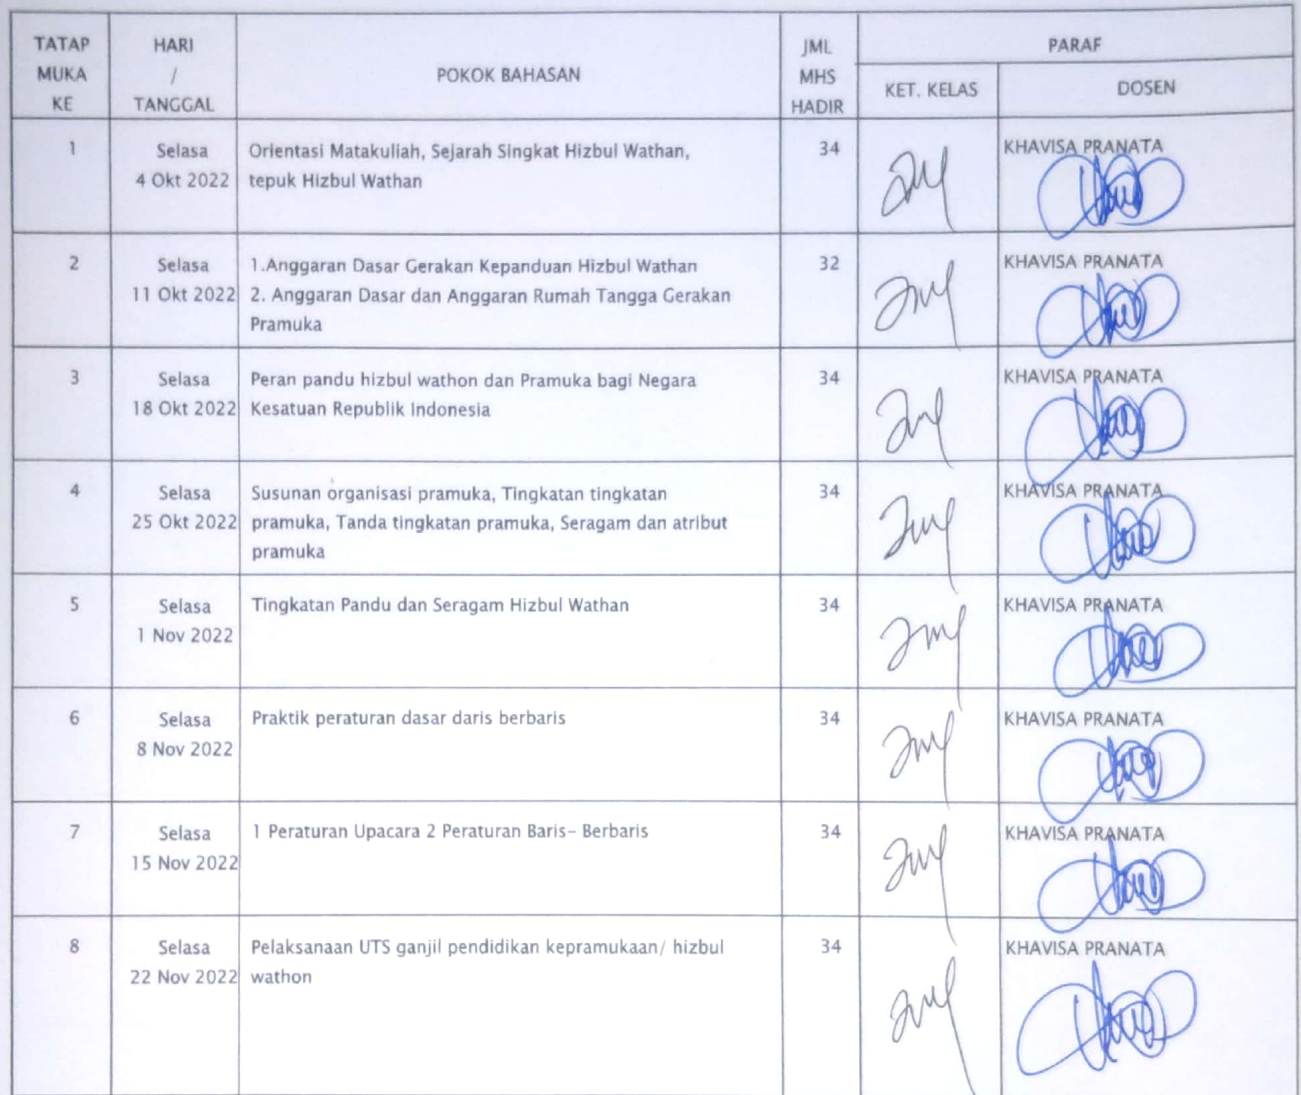 TATAP MUKA KE
HARI / TANGGAL
POKOK BAHASAN
JML MHS HADIR
PARAF
KET. KELAS
DOSEN
1
Selasa
4 Okt 2022
Orientasi Matakuliah, Sejarah Singkat Hizbul Wathan,
tepuk Hizbul Wathan
34
KHAVISA PRANATA
2
Selasa
11 Okt 2022
1.Anggaran Dasar Gerakan Kepanduan Hizbul Wathan
2. Anggaran Dasar dan Anggaran Rumah Tangga Gerakan
Pramuka
32
KHAVISA PRANATA
3
Selasa
18 Okt 2022
Peran pandu hizbul wathon dan Pramuka bagi Negara
Kesatuan Republik Indonesia
34
KHAVISA PRANATA
4
Selasa
25 Okt 2022
Susunan organisasi pramuka, Tingkatan tingkatan
pramuka, Tanda tingkatan pramuka, Seragam dan atribut
pramuka
34
KHAVISA PRANATA
5
Selasa
1 Nov 2022
Tingkatan Pandu dan Seragam Hizbul Wathan
34
KHAVISA PRANATA
6
Selasa
8 Nov 2022
Praktik peraturan dasar daris berbaris
34
KHAVISA PRANATA
7
Selasa
15 Nov 2022
1 Peraturan Upacara 2 Peraturan Baris- Berbaris
34
KHAVISA PRANATA
8
Selasa
22 Nov 2022
Pelaksanaan UTS ganjil pendidikan kepramukaan/ hizbul
wathon
34
KHAVISA PRANATA